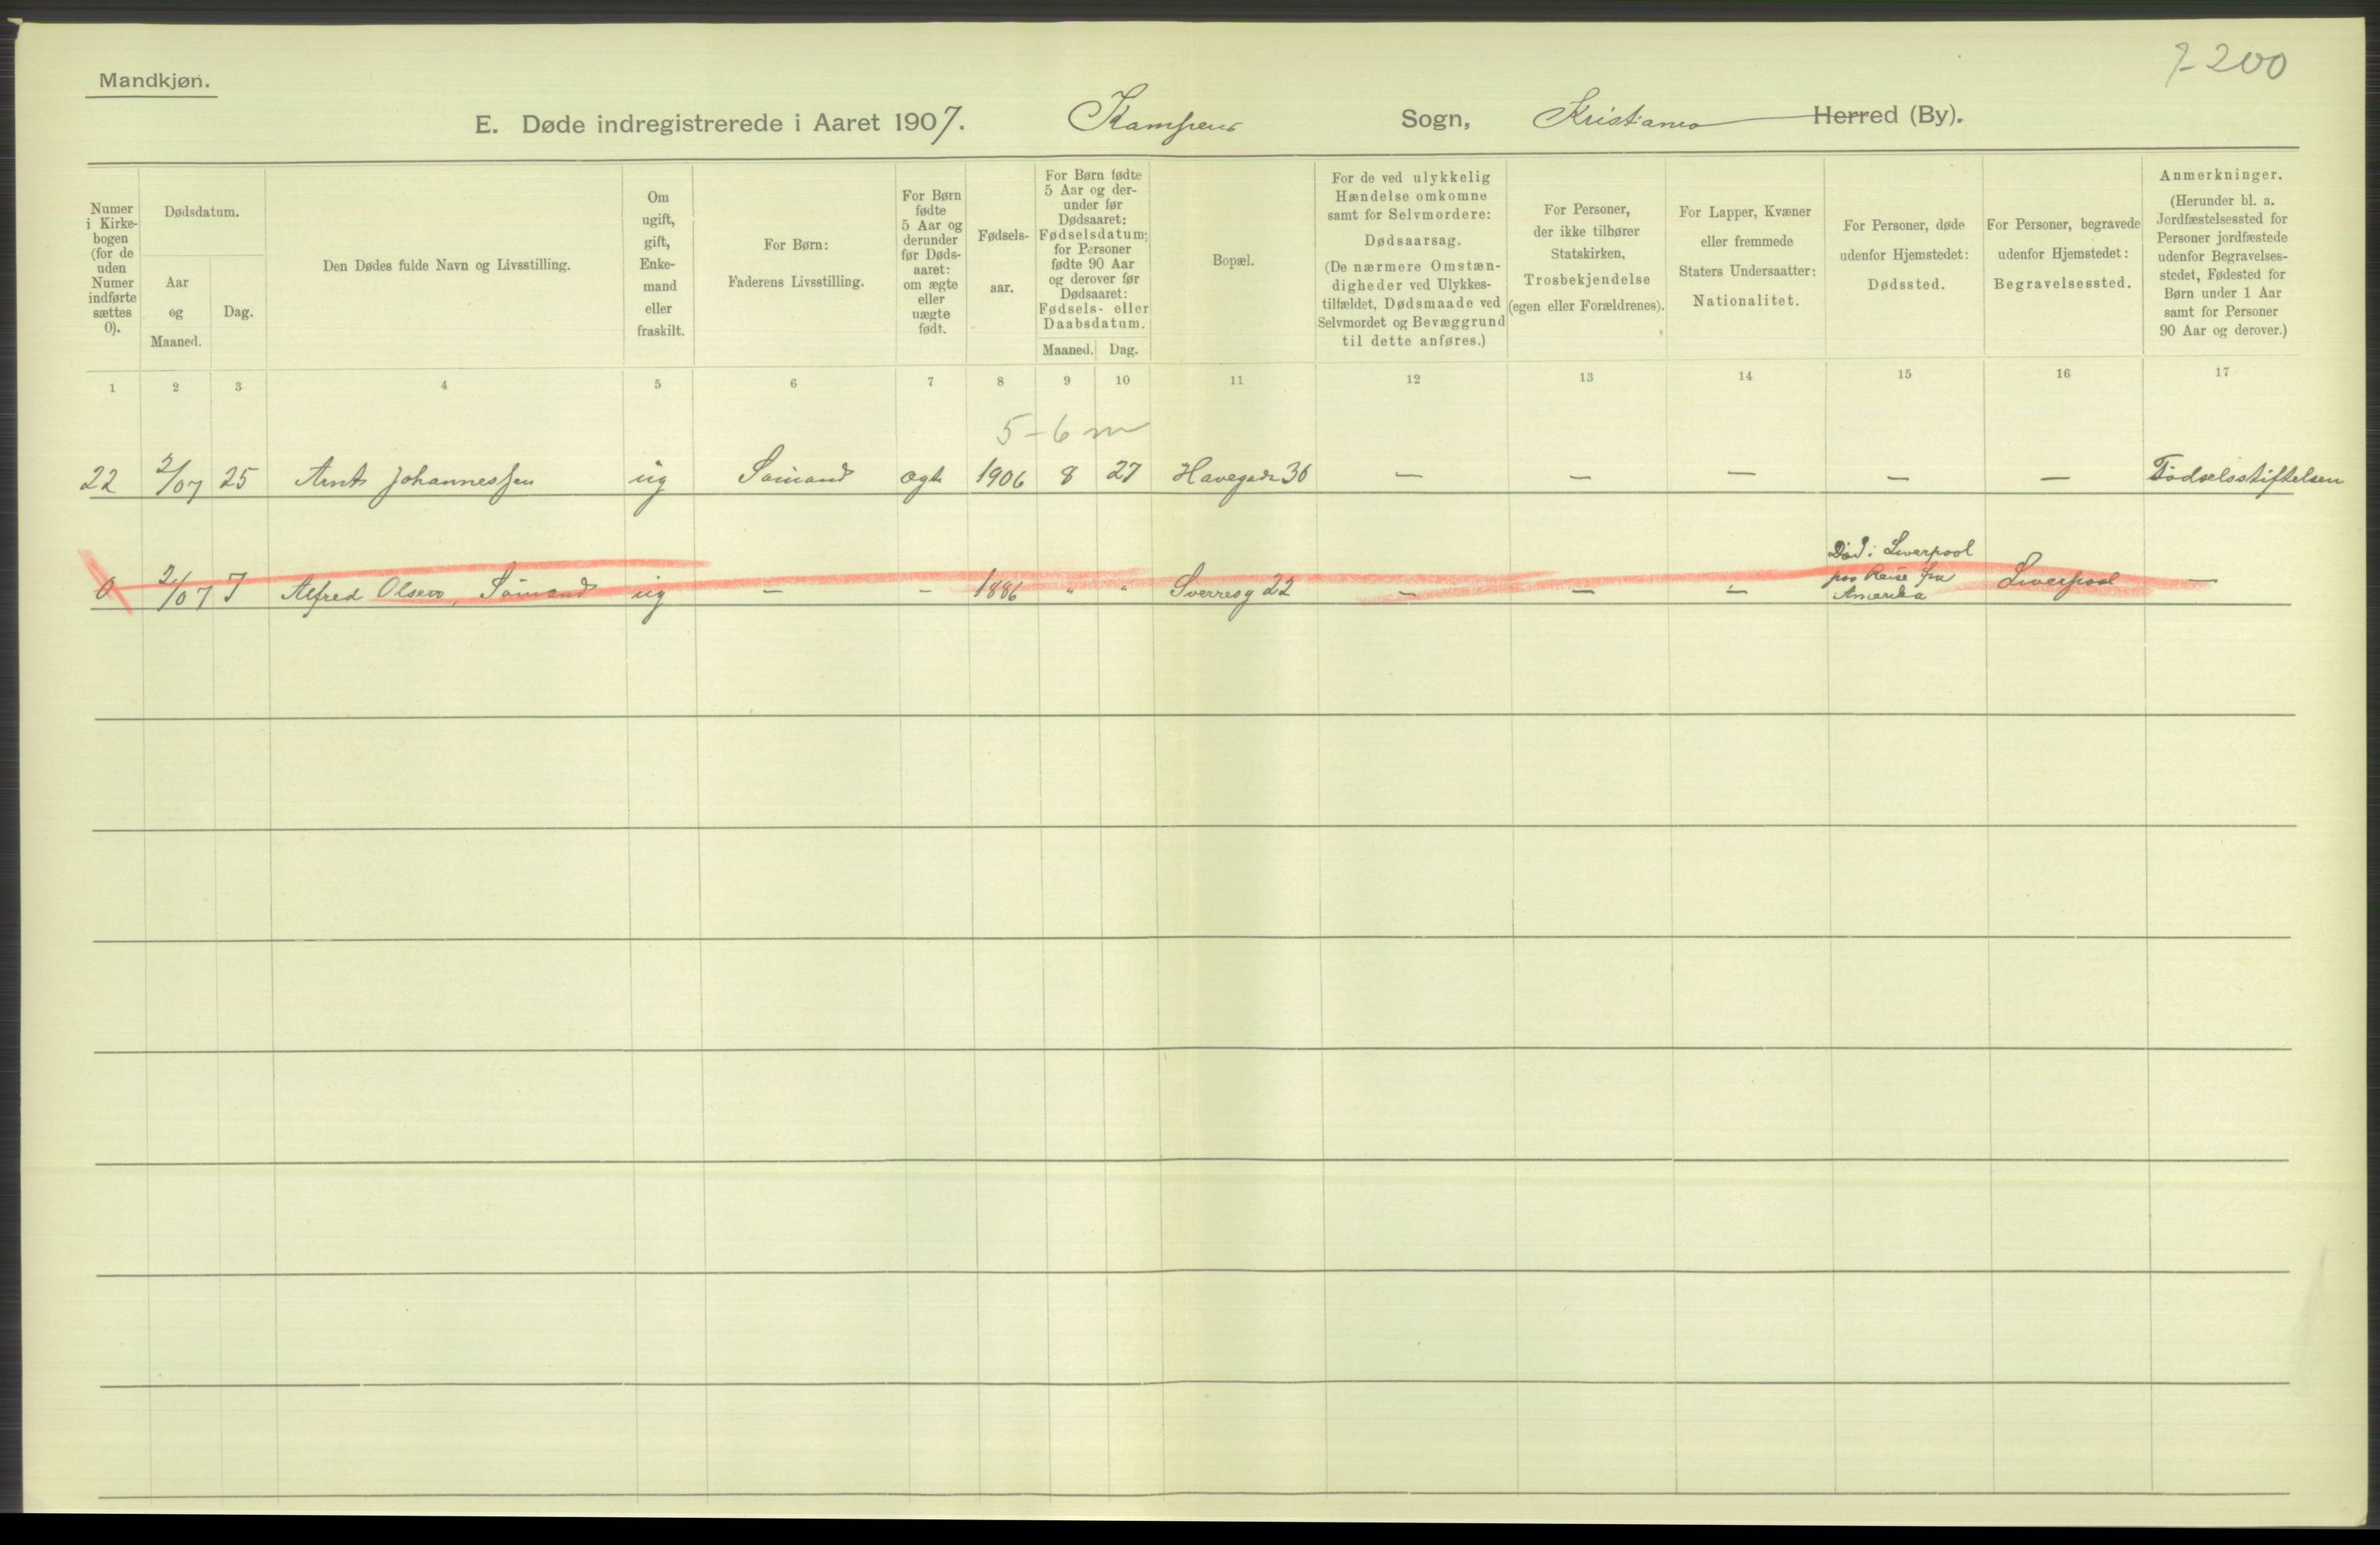 7-200
Mandkjøn.
E. Døde indregistrerede i Aaret 1907. Kampens Sogn, Kristiania Herred (By).
Numer
i Kirke-
bogen
(for de
uden
Numer
indførte
sættes
0).
Dødsdatum.
Aar
og
Maaned.
Dag.
Den Dødes fulde Navn og Livsstilling.
Om
ugift,
gift,
Enke-
mand
eller
fraskilt.
For Børn:
Faderens Livsstilling.
For Børn
fødte
5 Aar og
derunder
før Døds-
aaret:
om ægte
eller
uægte
født.
Fødsels-
aar.
For Børn fødte
5 Aar og der-
under før
Dødsaaret:
Fødselsdatum;
for Personer
fødte 90 Aar
og derover før
Dødsaaret:
Fødsels- eller
Daabsdatum.
Maaned. Dag.
Bopæl.
For de ved ulykkelig
Hændelse omkomne
samt for Selvmordere:
Dødsaarsag.
(De nærmere Omstæn-
digheder ved Ulykkes-
tilfældet, Dødsmaade ved
Selvmordet og Bevæggrund
til dette anføres.)
For Personer,
der ikke tilhører
Statskirken,
Trosbekjendelse
(egen eller Forældrenes).
For Lapper, Kvæner
eller fremmede
Staters Undersaatter:
Nationalitet.
For Personer, døde
udenfor Hjemstedet:
Dødssted.
For Personer, begravede
udenfor Hjemstedet:
Begravelsessted.
Anmerkninger.
(Herunder bl. a.
Jordfæstelsessted for
Personer jordfæstede
udenfor Begravelses-
stedet, Fødested for
Børn under 1 Aar
samt for Personer
90 Aar og derover.)
1 2 3 4 5 6 7 8 9 10 11 12 13 14 15 16 17
5-6 m
22 2/07 25 Arnt Johannessen ug Sømand ægte 1906 8 27 Havegade 36 — — — — — Fødselsstiftelsen
0 2/07 7 Alfred Olsen, Sømand ug — - 1886 " " Sverresg 22 — — — Død i Liverpool
paa Reise fra
Amerika
Liverpool —